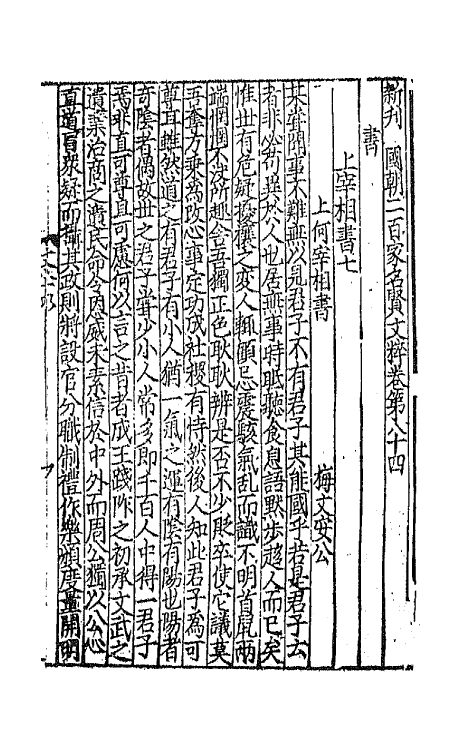 新刊國朝二百家名賢文粹卷第八十四
書
上宰相書七
上何宰相書 梅文安公
某嘗聞事不難無以見君子不有君子其能國乎昔

之君子云
者非必苟異於人也居無事時眡聽食息語默步趨人而已矣
惟世有危疑擾攘之變人輒顧忌震駭氣亂而識不明首鼠兩
端惘惘不沒所趣舍吾獨正色耿耿辨是否不少貶卒使它議莫
吾奪萬乘為改心事定功成社稷有恃然後人知此君子為可
尊耳雖然道之有君子有小人猶一氣之運有陰有陽也陽者
奇陰者偶故世之君子常少小人常多即千百人中得一君子
焉非直可尊且可慮何以言之昔者成王踐阼之初承文武之
遺業治商之遺民命令恩威未素信於中外而周公獨以公心
直道冒衆疑而攝其政則將設官分職制禮作樂頒度量開明